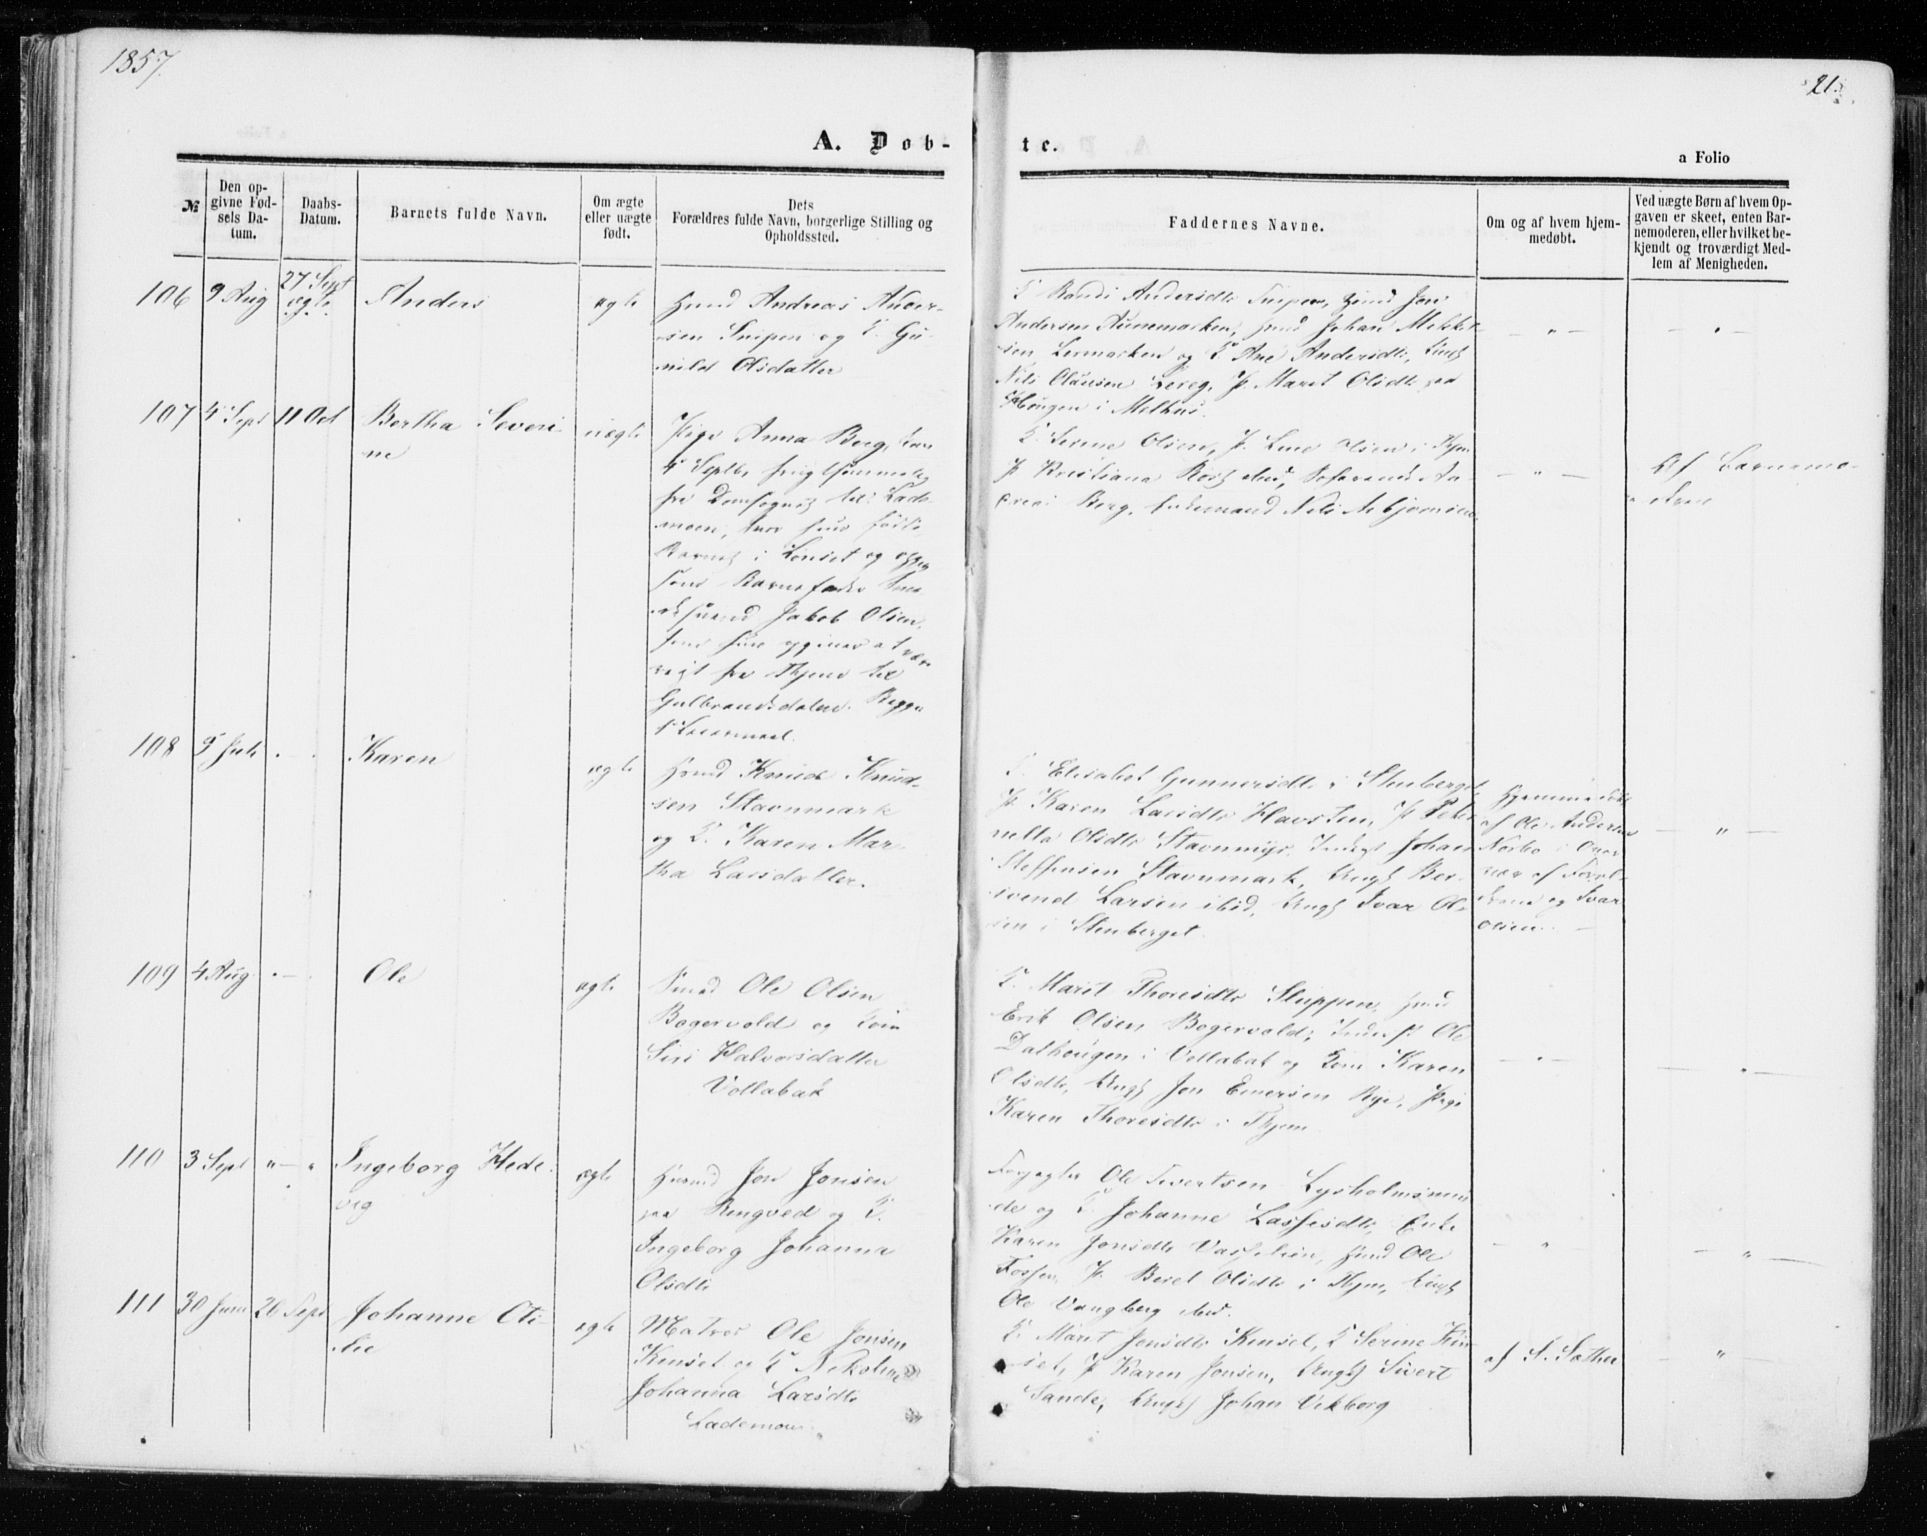 1857.
21.
A. Døb-
te.
a Folio
№
Den op-
givne Fød-
sels Da-
tum.
Daabs-
Datum.
Barnets fulde Navn.
Om ægte
eller uægte
født.
Dets
Forældres fulde Navn, borgerlige Stilling og
Opholdssted.
Faddernes Navne.
Om og af hvem hjem-
medøbt.
Ved uægte Børn af hvem Op-
gaven er skeet, enten Bar-
nemoderen, eller hvilket be-
kjendt og troværdigt Med-
lem af Menigheden.
106
9 Aug
27 Sept
Anders
ægte
Hmd Andreas Ander-
sen Snipen og K. Gu-
nild Olsdatter
K. Randi Andersdtr Snipen, Hmd Jon
Andersen Aunemarken, Hmd Johan Mikkel-
sen Lermarken og K. Ane Andersdtr, Ungk
Nils Olausen Lereg, P. Marit Olsdtr paa
Haugen i Melhus.
107
4 Sept
11 Oct
Bertha Severi-
ne
uægte
Pige Anna Berg, kom
fra Domsognet til Lade-
moen, hvor hun fødte
Barnet i Lønset og
som Barnefader
Jakob Olsen,
som hun opgiver at være
rejst fra Thjem til
Gulbrandsdalen. Begges
1ste Leiermaal.
K. Serine Olsen, P. Line Olsen i Thjem
P. Kristiana
Berg, Enkemand Nils Asbjørnsen
Af Barnemo-
deren
108
9 Juli
Karen
ægte
Hmd Knud Knud-
sen Stavnmark
og K. Karen Mar-
tha Larsdatter.
K. Elisabet Gunnersdtr i Stenberget,
P. Karen Larsdtr Havsten, P. Peter-
nella Olsdtr Stavnmyr. Johan
Steffensen Stavnmark, Ungk Ber-
svend Larsen ibid, Ungk Ivar Ol-
sen i Stenberget.
Hjemmedøbt
af Ole Andersen
Nerbo i Over-
vær af Foræl-
drene og Ivar
Olsen.
109
4 Aug
Ole
ægte
Smed Ole Olsen
Bagervold og Kone
Siri Halvorsdatter
Vollabak
K. Marit Thoresdtr Sluppen, Hmd
Erik Olsen Bagervold, Ole
Dalhaugen i Vollabak og Kone Karen
Olsdtr, Ungk Jon Emersen Rye, Pige
Karen Thoresdtr i Thjem
110
3 Sept
Ingeborg Hede-
vig
ægte
Husmd Jon Jonsen
paa Ringved og K.
Ingeborg Johanna
Olsdtr
Ole Sivertsen Lysholmsmin-
de og K. Johanne Lassesdtr, Enke
Karen Jonsdtr Vasselien, Hmd Ole
Fossen, P. Beret Olsdtr i Thjem, Ungk
Ole Vangberg ibid.
111
30 Juni
26 Sept
Johanne Oti-
lie
ægte
Matros Ole Jonsen
Kinset og K. Nikoline
Johanna Larsdtr
Lademoen.
K. Marit Jonsdtr Kinset, K. Serine Kin-
set, P. Karen Jonsen, Ungk Sivert
Sande, Ungk Johan Vikberg
af S. Sæther